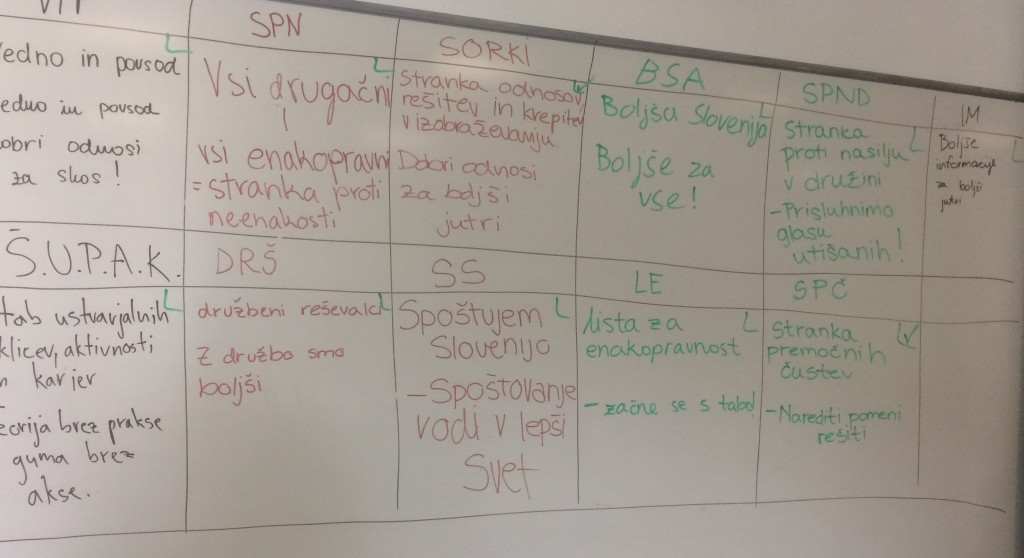 SPN
SORKI
BSA
SPND
IM
Vsi drugačni
vsi enakopravni
= stranka proti
neenakosti
Stranka odnosov
rešitev in krepitev
v izobraževanju
Dobri odnosi
za boljši
jutri
Boljša Slovenija
Boljše za
vse!
Stranka
proti nasilju
v družini
- Prisluhnimo
glasu
utišanih!
Boljše
informacije
za boljši
jutri
edno in povsod
edno in povsod
obri odnosi
za skos!
Š.U.P.A.K.
DRŠ
SS
LE
SPČ
tab ustvarjalnih
klicev, aktivnosti
n karier
eorija brez prakse
guma brez
akse.
družbeni reševalci
Z družbo smo
boljši
Spoštujem
Slovenijo
- Spoštovanje
vodi v lepši
Svet
lista za
enakopravnost
- začne se s tabo!
Stranka
premočnih
čustev
- Narediti pomeni
rešiti